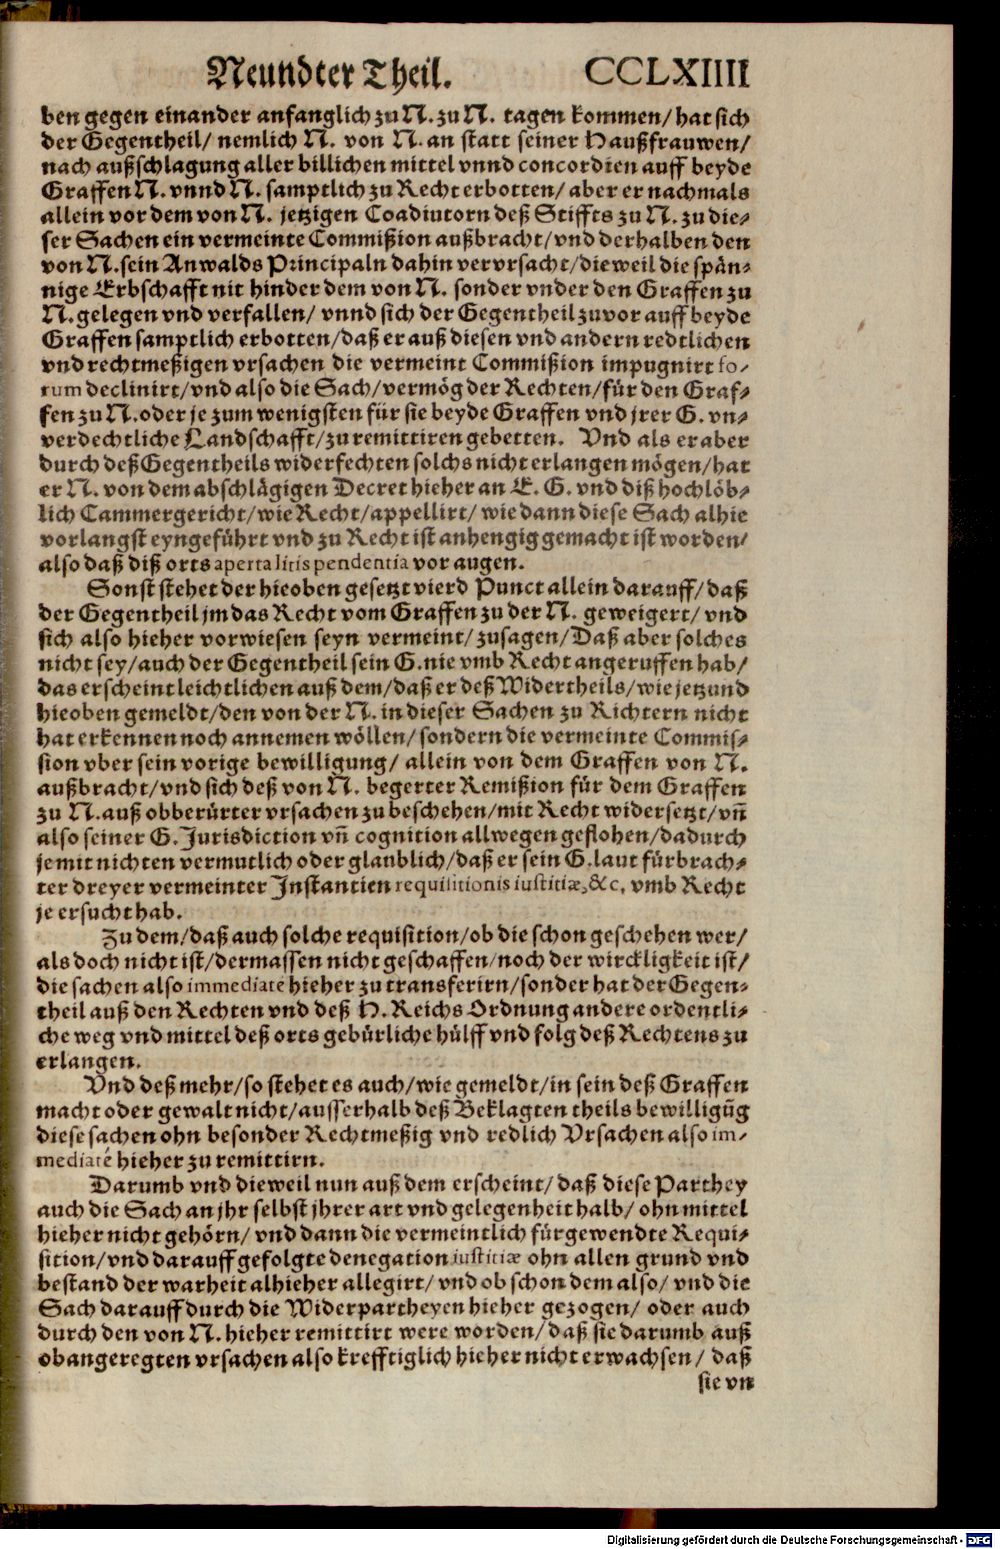 Neundter Theil. CCLXIIII
ben gegen einander anfanglich zu N. zu N. tagen kommen/ hat sich
der Gegentheil/ nemlich N. von N. an statt seiner Haußfrauwen/
nach außschlagung aller billichen mittel vnnd concordien auff beyde
Graffen N. vnnd N. samptlich zu Recht erbotten/ aber er nachmals
allein vor dem von N. jetzigen Coadiutorn deß Stiffts zu N. zu die-
ser Sachen ein vermeinte Commißion außbracht/ vnd derhalben den
von N. sein Anwalds Principaln dahin vervrsacht/ dieweil die spän-
nige Erbschafft nit hinder dem von N. sonder vnder den Graffen zu
N. gelegen vnd verfallen/ vnnd sich der Gegentheil zuvor auff beyde
Graffen samptlich erbotten/ daß er auß diesen vnd andern redtlichen
vnd rechtmeßigen vrsachen die vermeint Commißion impugnirt fo-
rum declinirt/ vnd also die Sach/ vermög der Rechten/ für den Graf-
fen zu N. oder je zum wenigsten für sie beyde Graffen vnd jrer G. vn-
verdechtliche Landschafft/ zu remittiren gebetten. Vnd als er aber
durch deß Gegentheils widerfechten solchs nicht erlangen mögen/ hat
er N. von dem abschlägigen Decret hieher an E. G. vnd diß hochlöb-
lich Cammergericht/ wie Recht/ appellirt/ wie dann diese Sach alhie
vorlangst eyngeführt vnd zu Recht ist anhengig gemacht ist worden/
also daß diß orts aperta litis pendentia vor augen.
Sonst stehet der hieoben gesetzt vierd Punct allein darauff/ daß
der Gegentheil jm das Recht vom Graffen zu der N. geweigert/ vnd
sich also hieher vorwiesen seyn vermeint/ zusagen/ Daß aber solches
nicht sey/ auch der Gegentheil sein G. nie vmb Recht angeruffen hab/
das erscheint leichtlichen auß dem/ daß er deß Widertheils/ wie jetzund
hieoben gemeldt/ den von der N. in dieser Sachen zu Richtern nicht
hat erkennen noch annemen wöllen/ sondern die vermeinte Commis-
sion vber sein vorige bewilligung/ allein von dem Graffen von N.
außbracht/ vnd sich deß von N. begerter Remißion für dem Graffen
zu N. auß obberürter vrsachen zu beschehen/ mit Recht widersetzt/ vñ
also seiner G. Jurisdiction vñ cognition allwegen geflohen/ dadurch
je mit nichten vermutlich oder glaublich/ daß er sein G. laut fürbrach-
ter dreyer vermeinter Instantien requisitionis iustitiæ, &c. vmb Recht
je ersucht hab.
Zu dem/ daß auch solche requisition/ ob die schon geschehen wer/
als doch nicht ist/ dermassen nicht geschaffen/ noch der wirckligkeit ist/
die sachen also immediatè hieher zu transferirn/ sonder hat der Gegen-
theil auß den Rechten vnd deß H. Reichs Ordnung andere ordentli-
che weg vnd mittel deß orts gebürliche hülff vnd folg deß Rechtens zu
erlangen.
Vnd deß mehr/ so stehet es auch/ wie gemeldt/ in sein deß Graffen
macht oder gewalt nicht/ ausserhalb deß Beklagten theils bewilligũg
diese sachen ohn besonder Rechtmeßig vnd redlich Vrsachen also im-
mediatè hieher zu remittirn.
Darumb vnd dieweil nun auß dem erscheint/ daß diese Parthey
auch die Sach an jhr selbst jhrer art vnd gelegenheit halb/ ohn mittel
hieher nicht gehörn/ vnd dann die vermeintlich fürgewendte Requi-
sition/ vnd darauff gefolgte denegation iustitiæ ohn allen grund vnd
bestand der warheit alhieher allegirt/ vnd ob schon dem also/ vnd die
Sach darauff durch die Widerpartheyen hieher gezogen/ oder auch
durch den von N. hieher remittirt were worden/ daß sie darumb auß
obangeregten vrsachen also krefftiglich hieher nicht erwachsen/ daß
sie vn
Digitalisierung gefördert durch die Deutsche Forschungsgemeinschaft - DFG